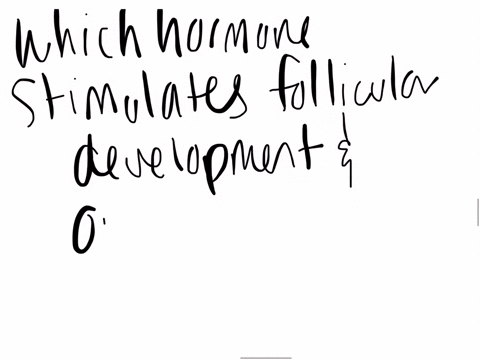 Which hormone
Stimulates follicular
development &
O